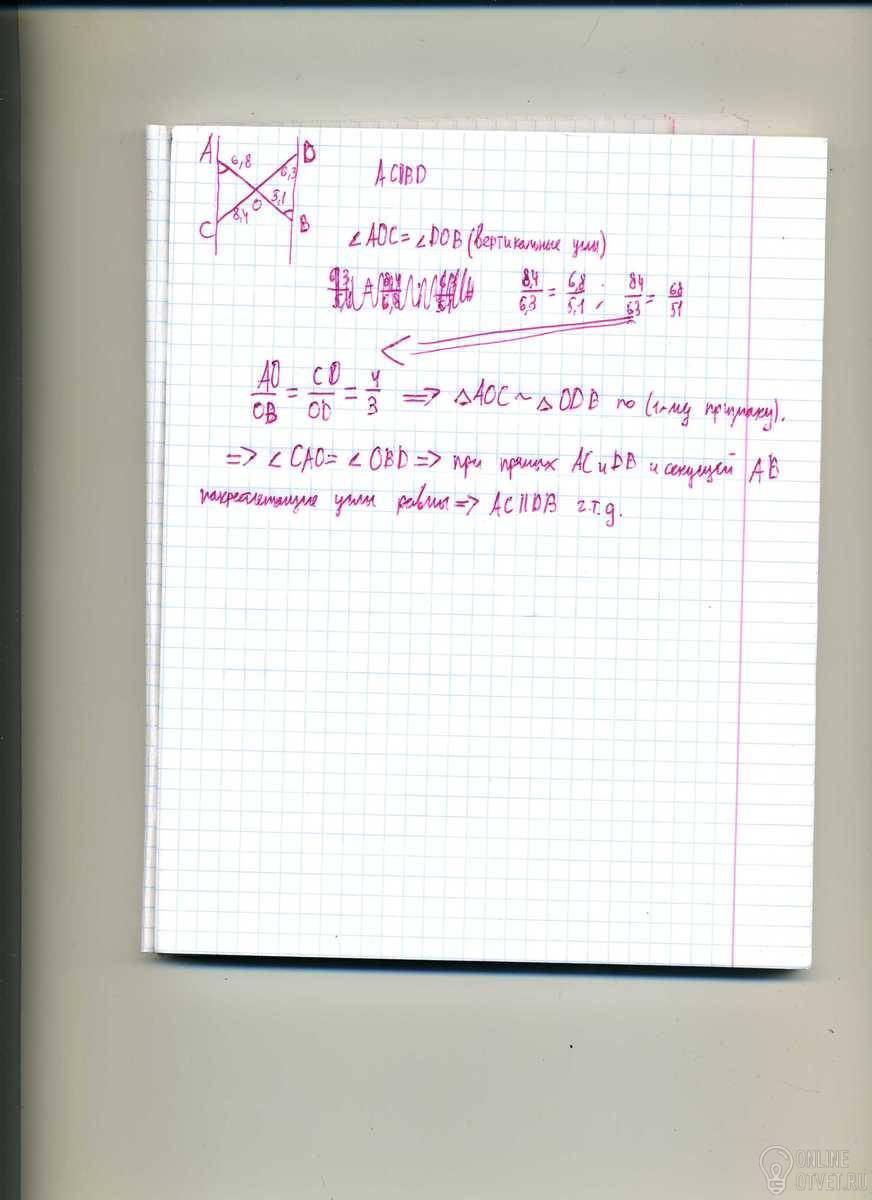 A 6,8 D 6,3
O 5,1
C 8,4 B
AC||BD
∠AOC = ∠DOB (вертикальные углы)
8,4/6,3 = 6,8/5,1 ; 84/63 = 68/51
AO/OB = CO/OD = 4/3 => △AOC ~ △ODB по (1-му признаку).
=> ∠CAO = ∠OBD => при прямых AC и DB и секущей AB
накрест лежащие углы равны => AC||DB ч.т.д.
ONLINE
OTVET.RU